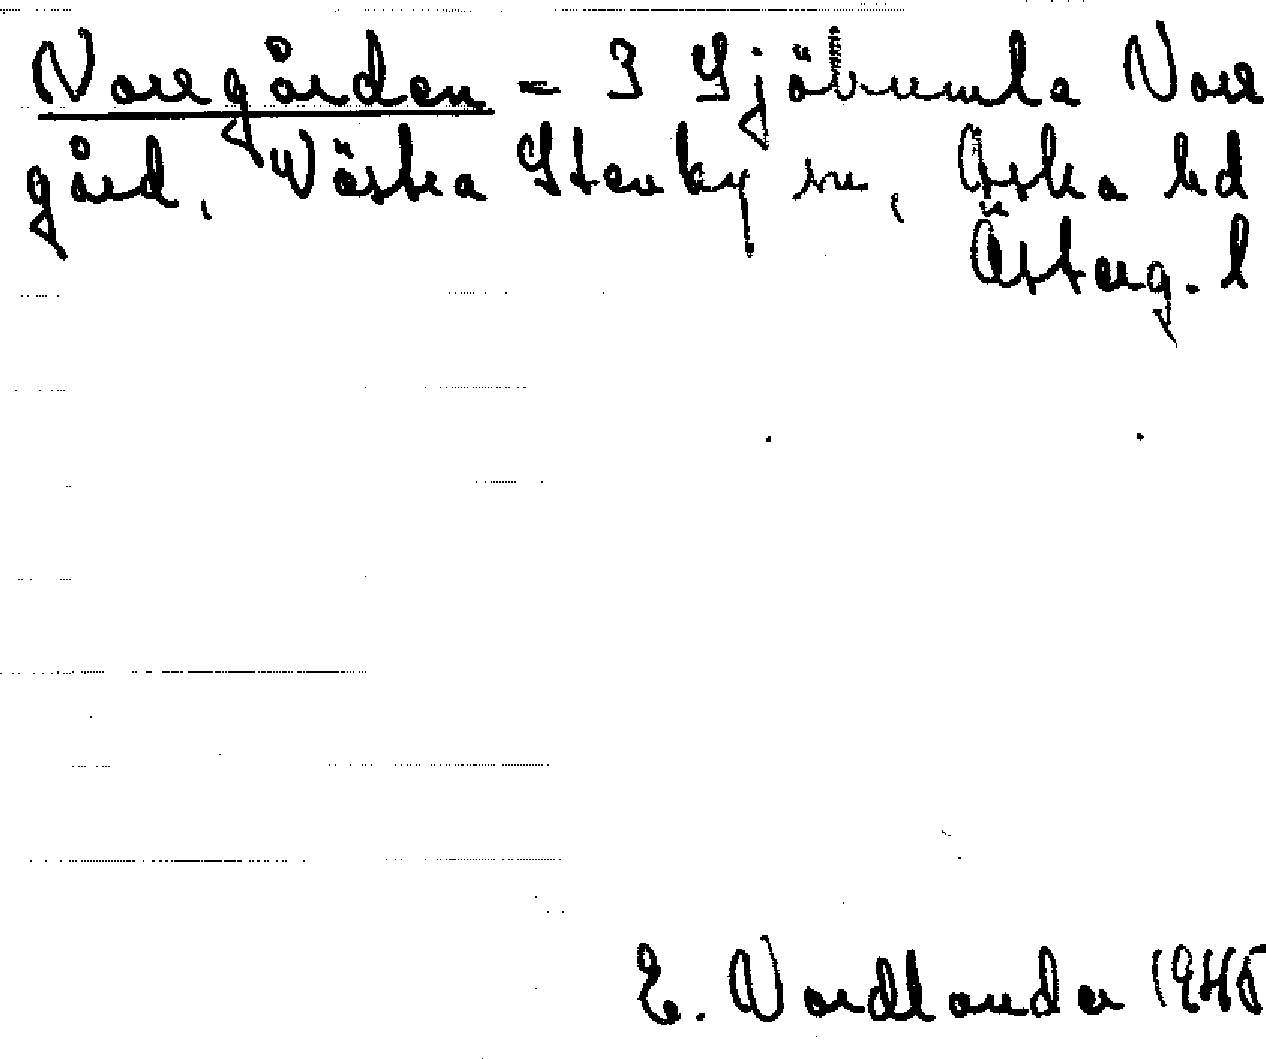 Norrgården = 3 Sjöbrumla Norr
gård, Västra Stenby sn, Aska hd
Österg. l
E. Nordlander 1945